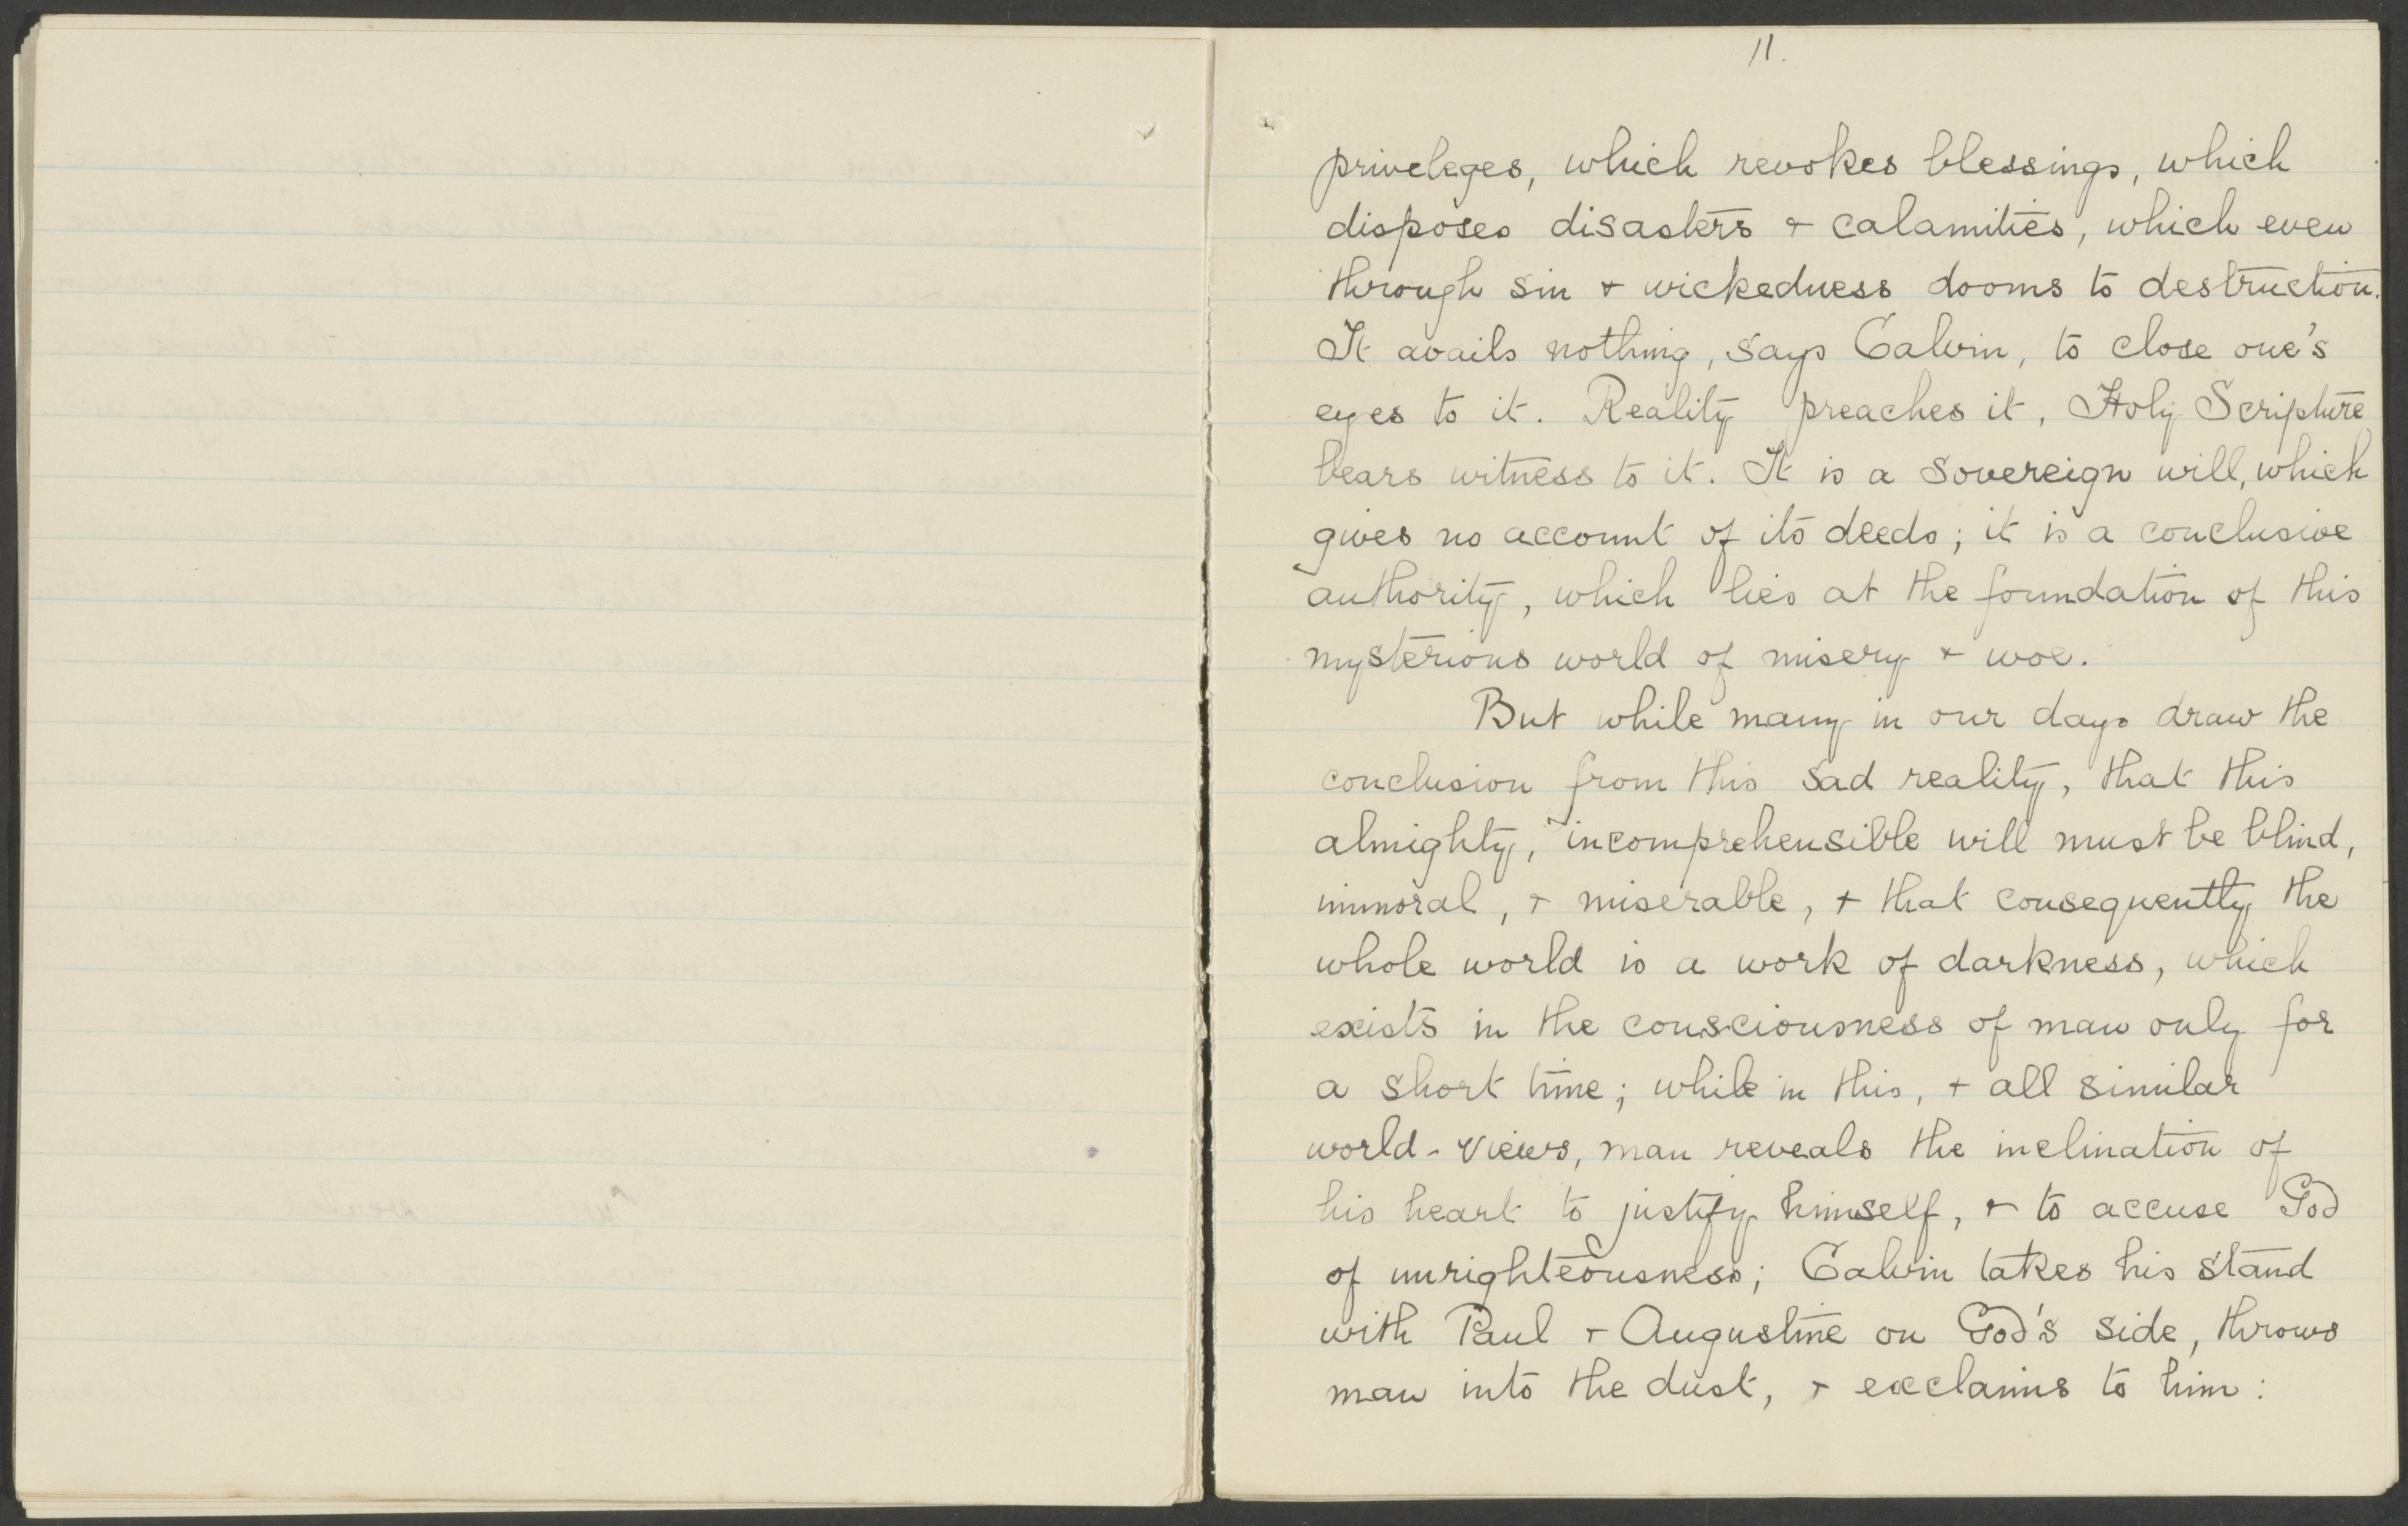 11.
priveleges, which revokes blessings, which
disposes disasters + calamities, which even
through sin + wickedness dooms to destruction.
It avails nothing, says Calvin, to close one's
eyes to it. Reality preaches it, Holy Scripture
bears witness to it. It is a sovereign will, which
gives no account of its deeds; it is a conclusive
authority, which lies at the foundation of this
mysterious world of misery + woe.
But while many in our days draw the
conclusion from this sad reality, that this
almighty, incomprehensible will must be blind,
immoral, + miserable, + that consequently the
whole world is a work of darkness, which
exists in the consciousness of man only for
a short time; while in this, + all similar
world-views, man reveals the inclination of
his heart to justify himself, + to accuse God
of unrighteousness; Calvin takes his stand
with Paul + Augustine on God's side, throws
man into the dust, + exclaims to him: